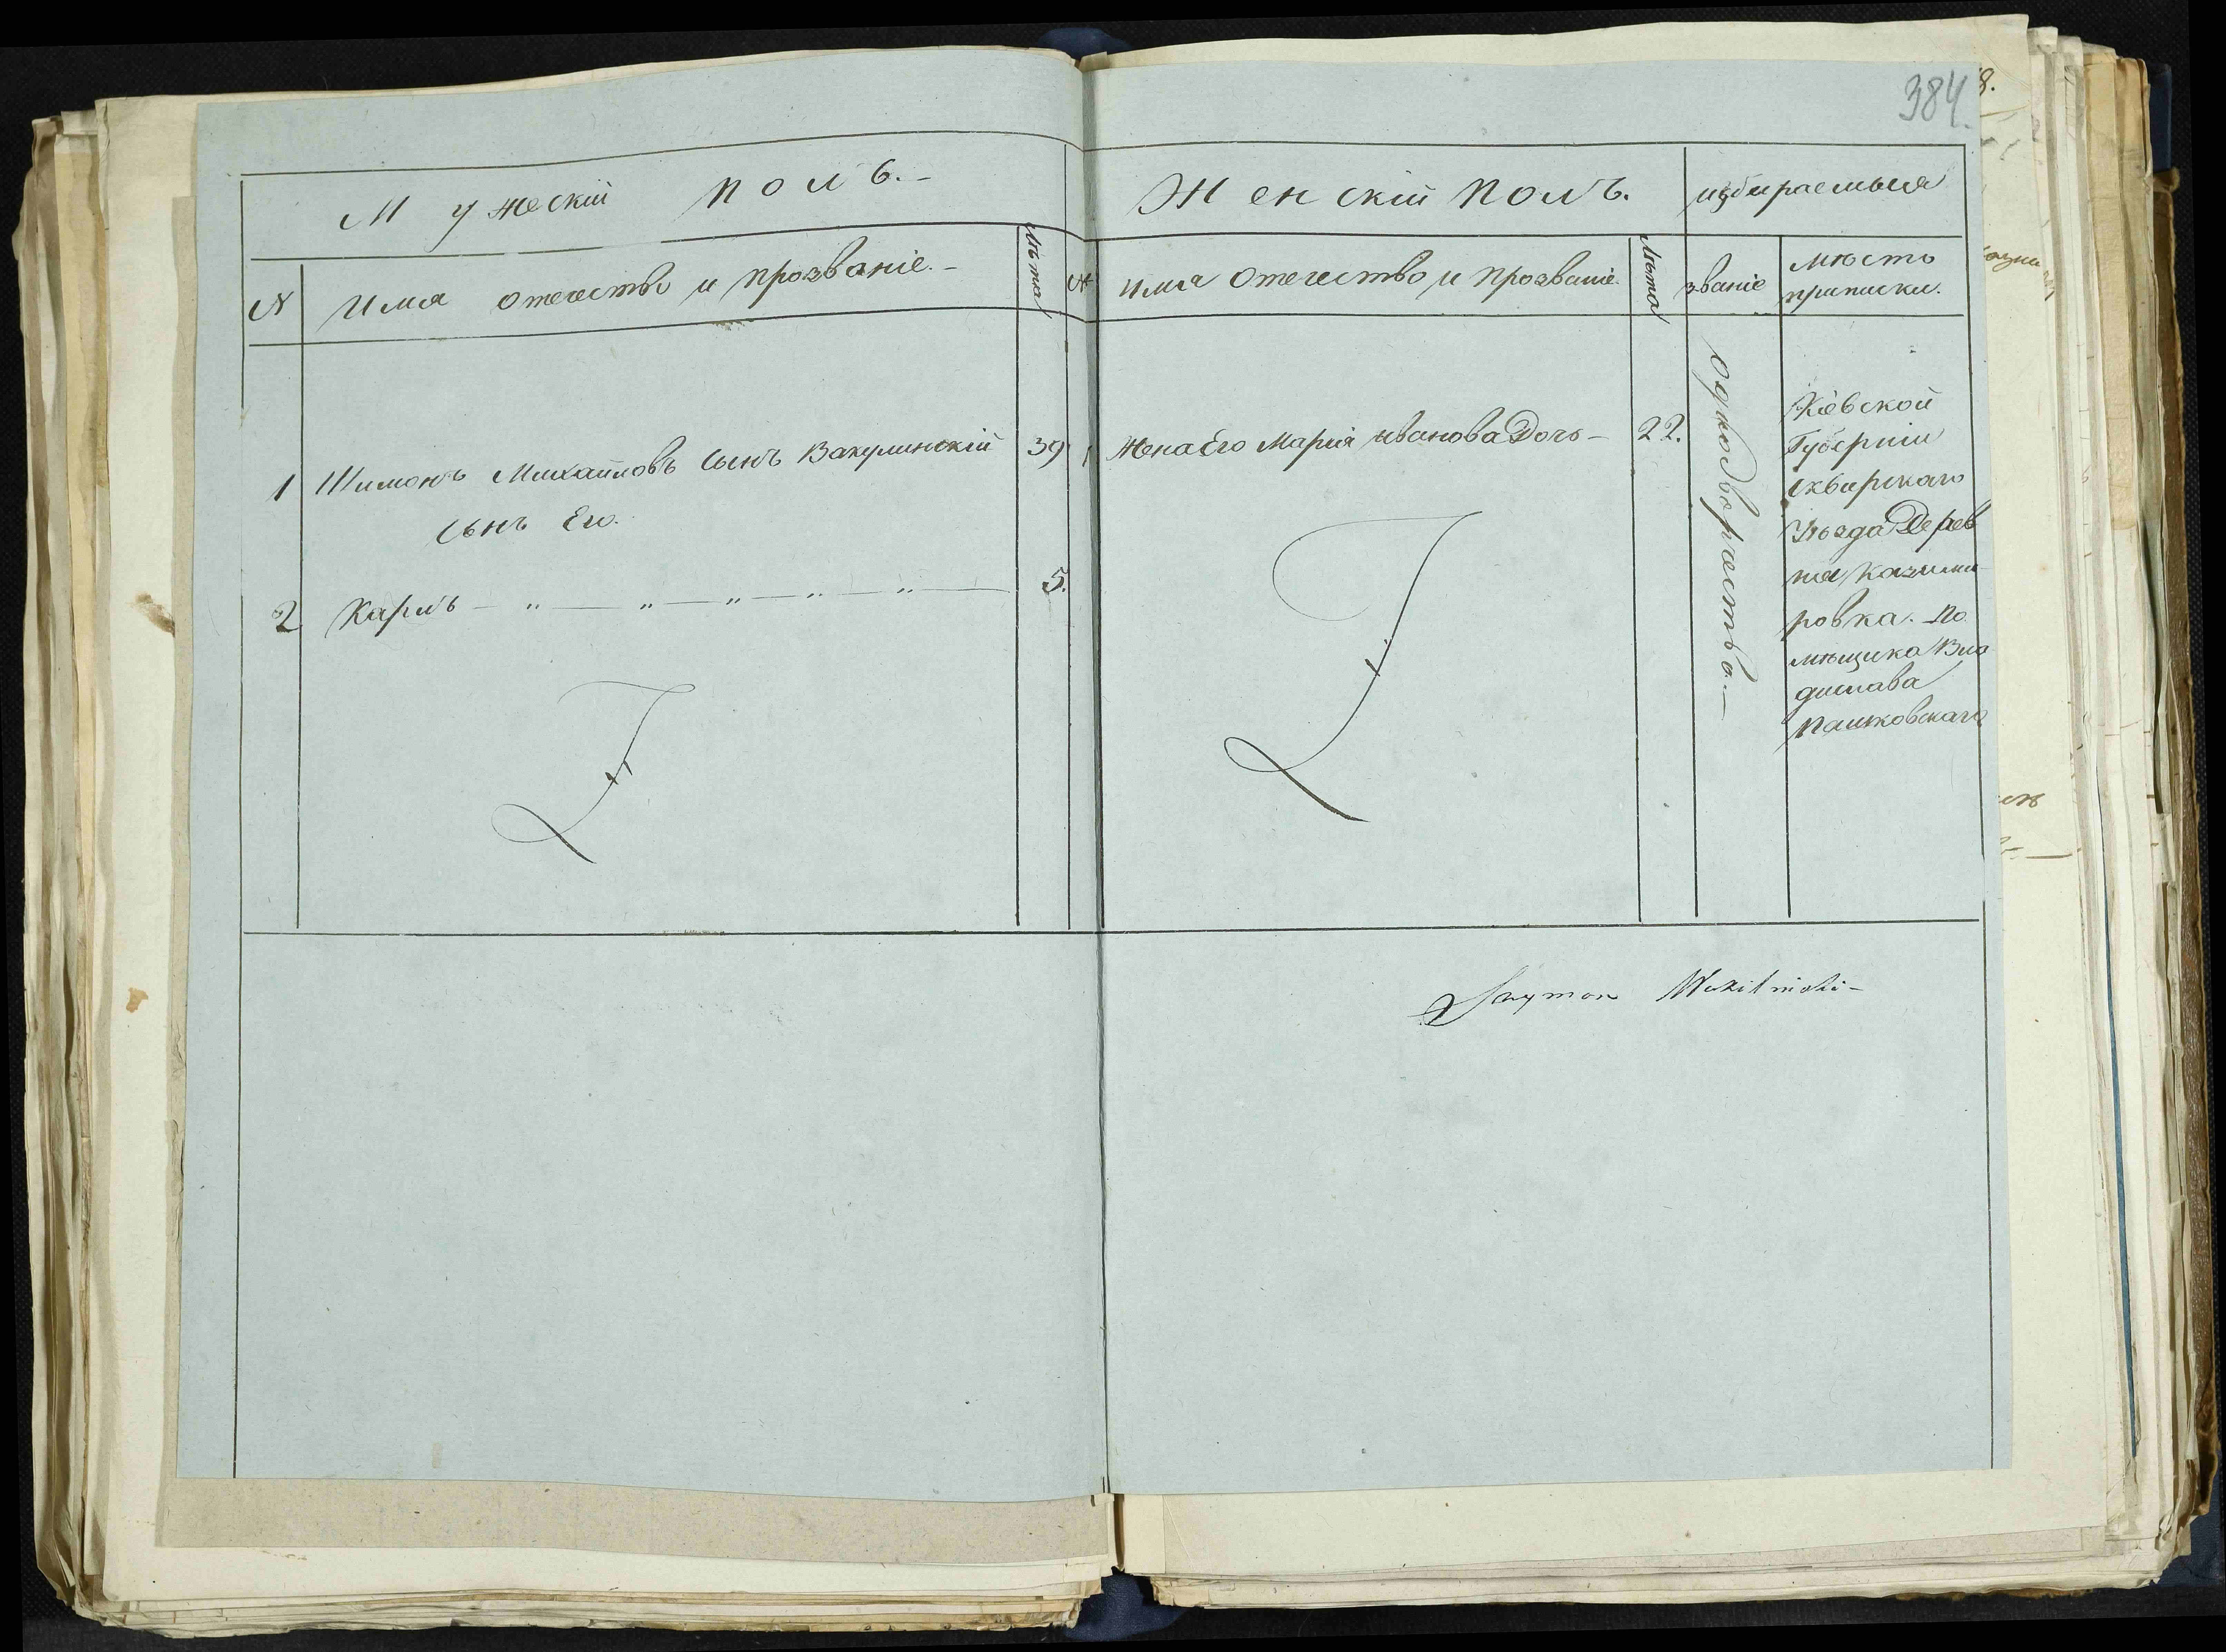 384.
Мужескій полъ.-
Женскій полъ.
избираемыя
N
Имя отечество и прозваніе.-
лѣта
N
имя Отечество и прозваніе.
лѣта
званіе
мѣсто
приписки.
1 Шимонъ Михайловъ Сынъ Вакулинскій 39
Сынъ Его.
2 Карлъ — „ — „ — „ — „ — „ — 5.
1 Жена Его Марія иванова Дочь - 22.
однодворчество.—
Кіевской
Губерніи
сквирскаго
Уѣзда Дерев
ня Казими-
ровка. По
мѣщика Вла
дислава
Пашковскаго
Szymon